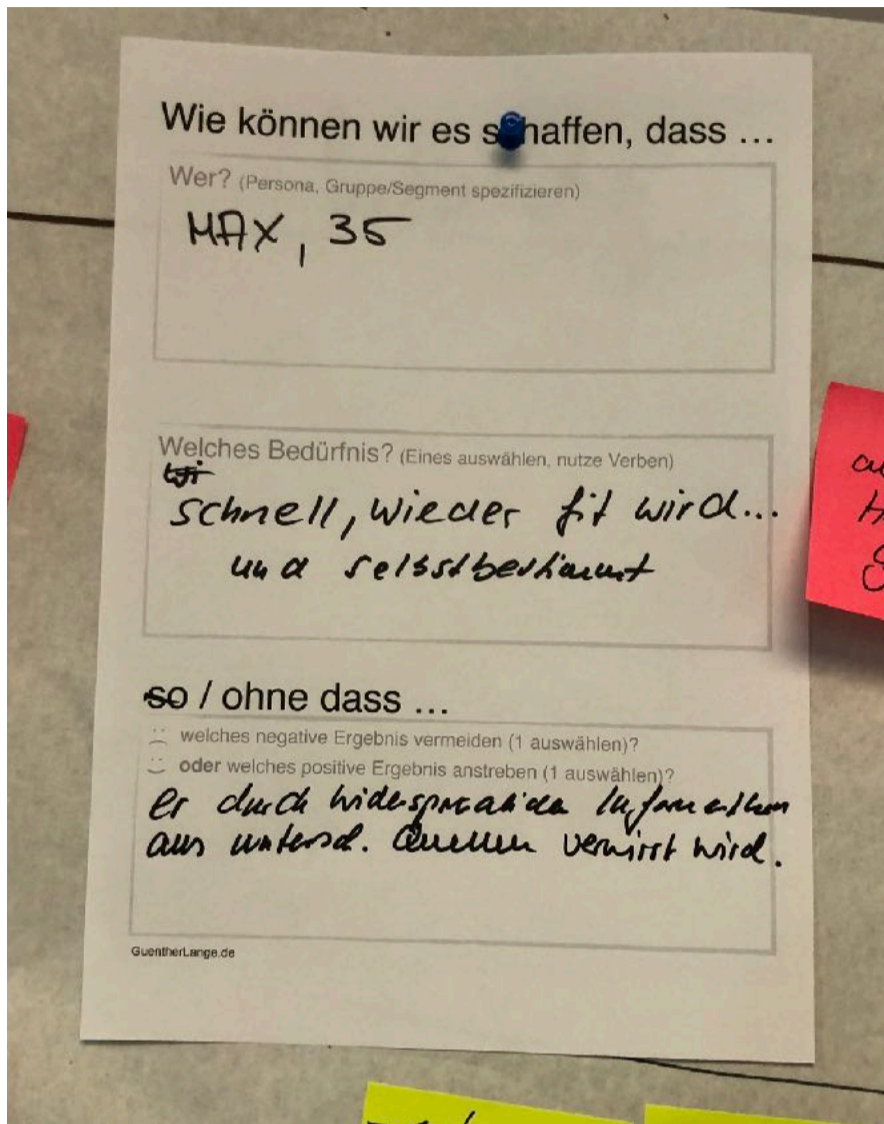 Wie können wir es schaffen, dass ...
Wer? (Persona, Gruppe/Segment spezifizieren)
MAX, 35
Welches Bedürfnis? (Eines auswählen, nutze Verben)
schnell, wieder fit wird...
und selbstbestimmt
so / ohne dass ...
welches negative Ergebnis vermeiden (1 auswählen)?
oder welches positive Ergebnis anstreben (1 auswählen)?
er durch widersprechende Information
aus untersch. Quellen verwirrt wird.
GuentherLange.de